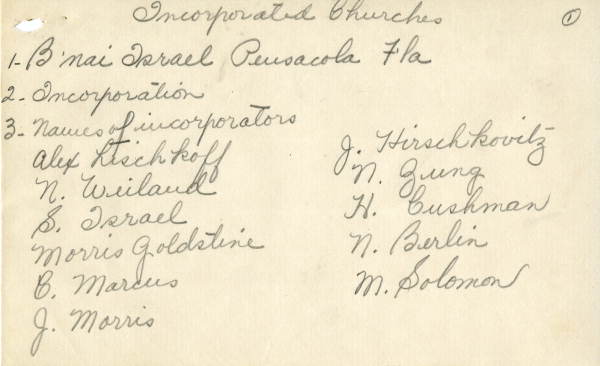 Incorporated Churches
1
1- B'nai Israel Pensacola Fla
2- Incorporation
3- Names of incorporators
Alex Lischkoff
N. Weiland
S. Israel
Morris Goldstine
C. Marcus
J. Morris
J. Hirschkovitz
N. Zung
H. Cushman
N. Berlin
M. Solomon